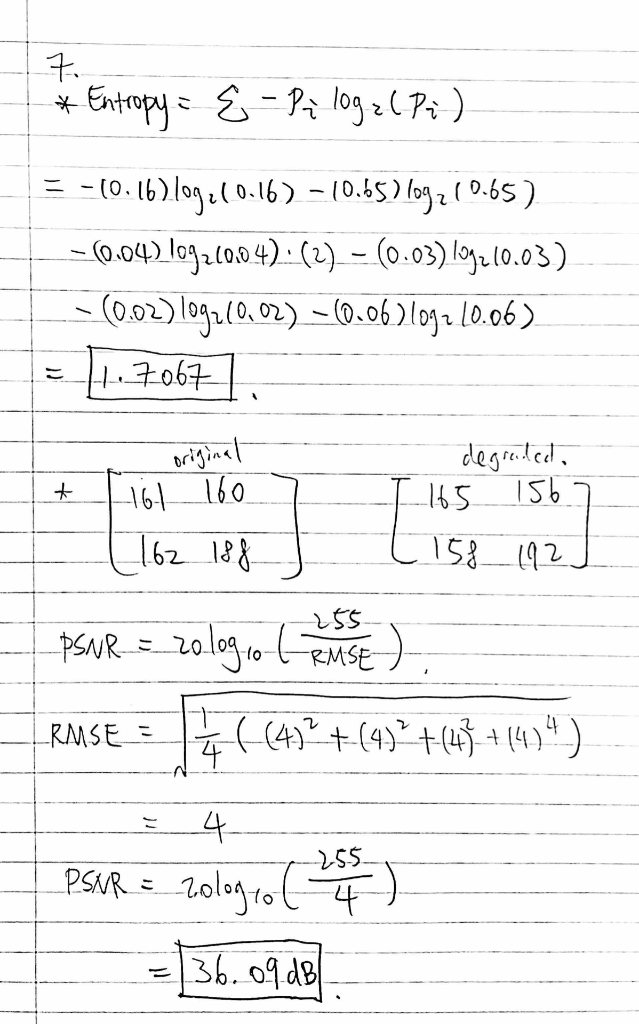 7.
* Entropy = Σ - Pi log2(Pi)
= -(0.16)log2(0.16) - (0.65)log2(0.65)
- (0.04)log2(0.04)·(2) - (0.03)log2(0.03)
- (0.02)log2(0.02) - (0.06)log2(0.06)
= 1.7067.
original degraded.
* [161 160 [165 156
162 188] 158 192]
PSNR = 20log10(255/RMSE).
RMSE = √(1/4((4)² + (4)² + (4)² + (4)⁴)
= 4
PSNR = 20log10(255/4)
= 36.09dB.